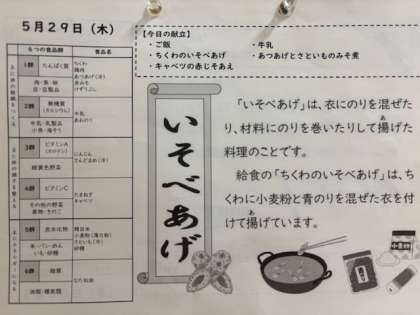 5月29日（木）
【今日の献立】
・ご飯
・牛乳
・ちくわのいそべあげ
・あつあげとさといものみそ煮
・キャベツの赤じそあえ
6つの食品群
食品名
1群 たんぱく質
肉・魚・卵
豆・豆製品
ちくわ
鶏肉
あつあげ(冷)
赤みそ
けずりぶし
2群 無機質
(カルシウム)
牛乳・乳製品
小魚・海そう
牛乳
あおのり
3群 ビタミンA
(カロテン)
緑黄色野菜
にんじん
さんどまめ(冷)
4群 ビタミンC
その他の野菜
果物・きのこ
たまねぎ
キャベツ
5群 炭水化物
米・パン・めん
いも・砂糖
精白米
小麦粉(薄力粉)
さといも(冷)
砂糖
6群 脂質
油脂・種実類
なたね油
いそべあげ
「いそべあげ」は、衣にのりを混ぜた
り、材料にのりを巻いたりして揚げた
料理のことです。
給食の「ちくわのいそべあげ」は、ち
くわに小麦粉と青のりを混ぜた衣を付
けて揚げています。
小麦粉